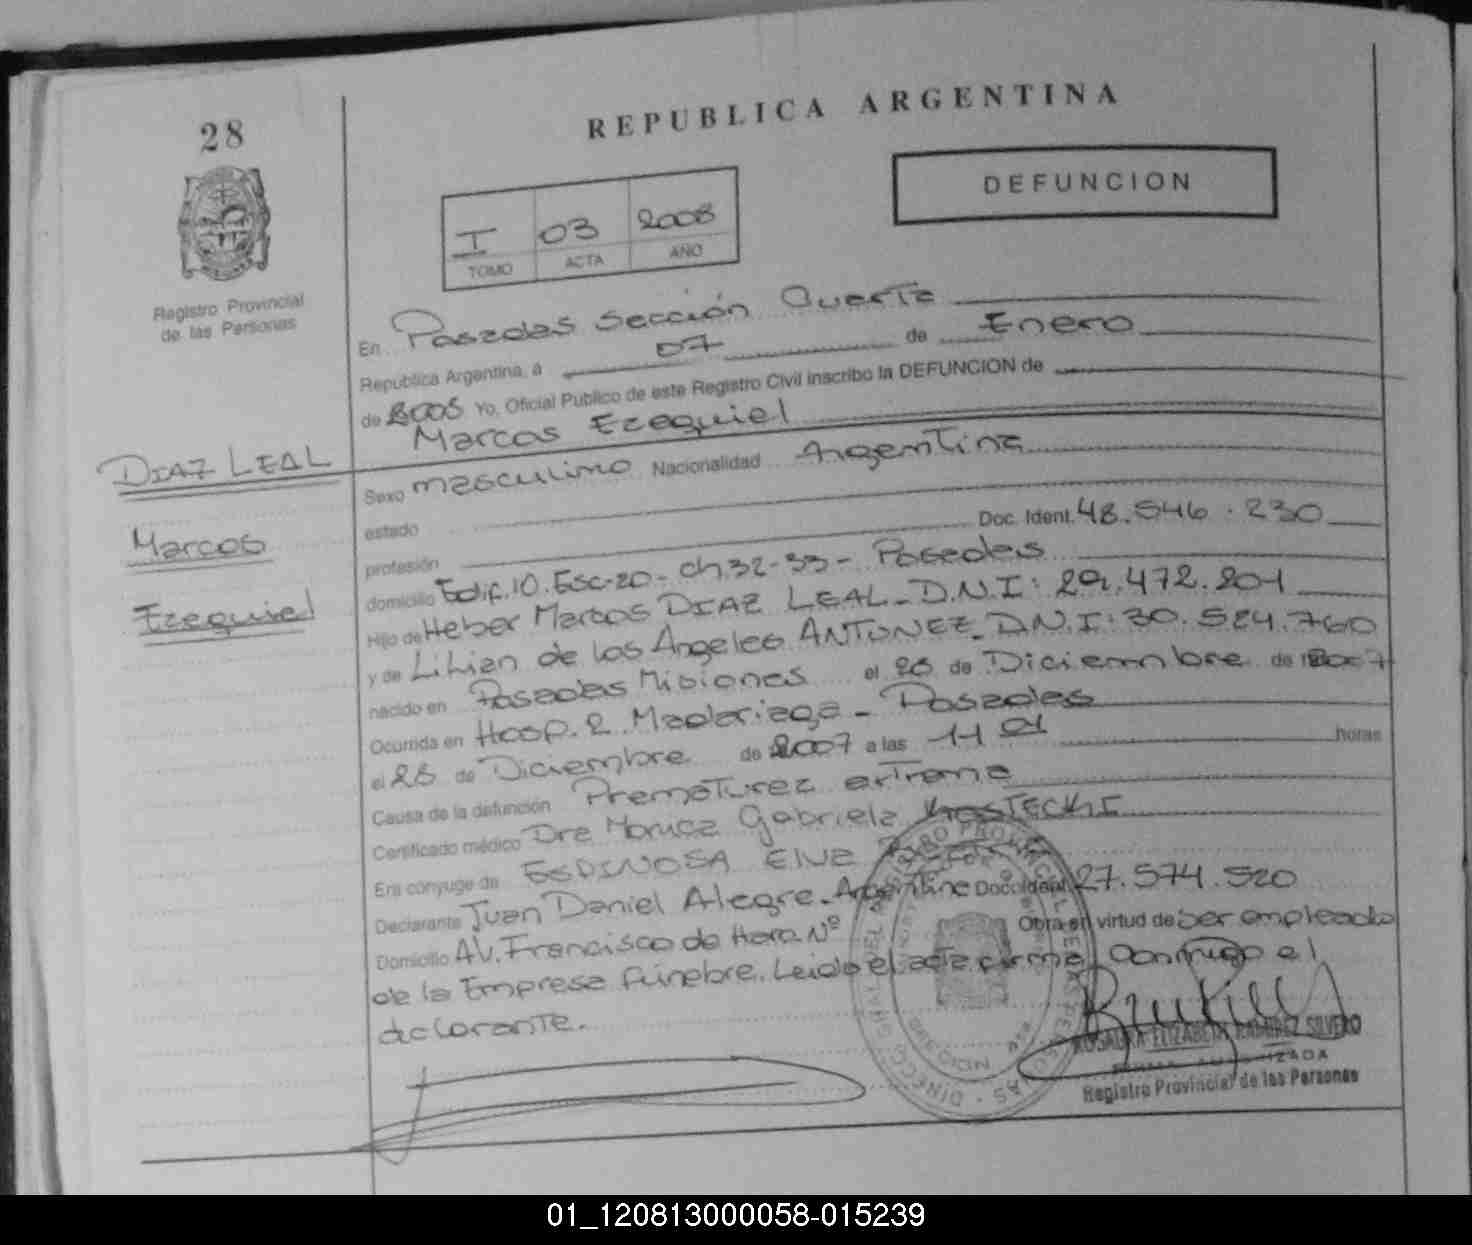 28
REPUBLICA ARGENTINA
DEFUNCION
I 03 2008
TOMO ACTA AÑO
Registro Provincial
de las Personas
En Posadas Sección Cuarta
Republica Argentina, a 07 de Enero
de 2008 Yo, Oficial Publico de este Registro Civil inscribo la DEFUNCION de
Marcos Ezequiel
DIAZ LEAL
Marcos
Ezequiel
Sexo masculino Nacionalidad Argentina
estado
profesión Doc. Ident. 48.546.230
domicilio Edif. 10. Esc-20- ch 32-33- Posadas
Hijo de Heber Marcos DIAZ LEAL_D.N.I: 29.472.201
y de Lilian de los Angeles ANTUNEZ_D.N.I: 30.524.760
nacido en Posadas Misiones el 28 de Diciembre de 2007
Ocurrida en Hosp. R. Madariaga - Posadas
el 28 de Diciembre de 2007 a las 11 horas
Causa de la defunción Prematurez extrema
Certificado médico Dra Monica Gabriela KOSTECKI
Era cónyuge de ESPINOSA
Declarante Juan Daniel Alegre-Argentino Doc. Ident. 27.574.520
Domicilio AV. Francisco de Haro Nº Obra en virtud de ser empleado
de la Empresa fúnebre. Leido el acta firma conmigo el
declarante.
ELIZABETH RAMIREZ SILVERO
Registro Provincial de las Personas
01_120813000058-015239